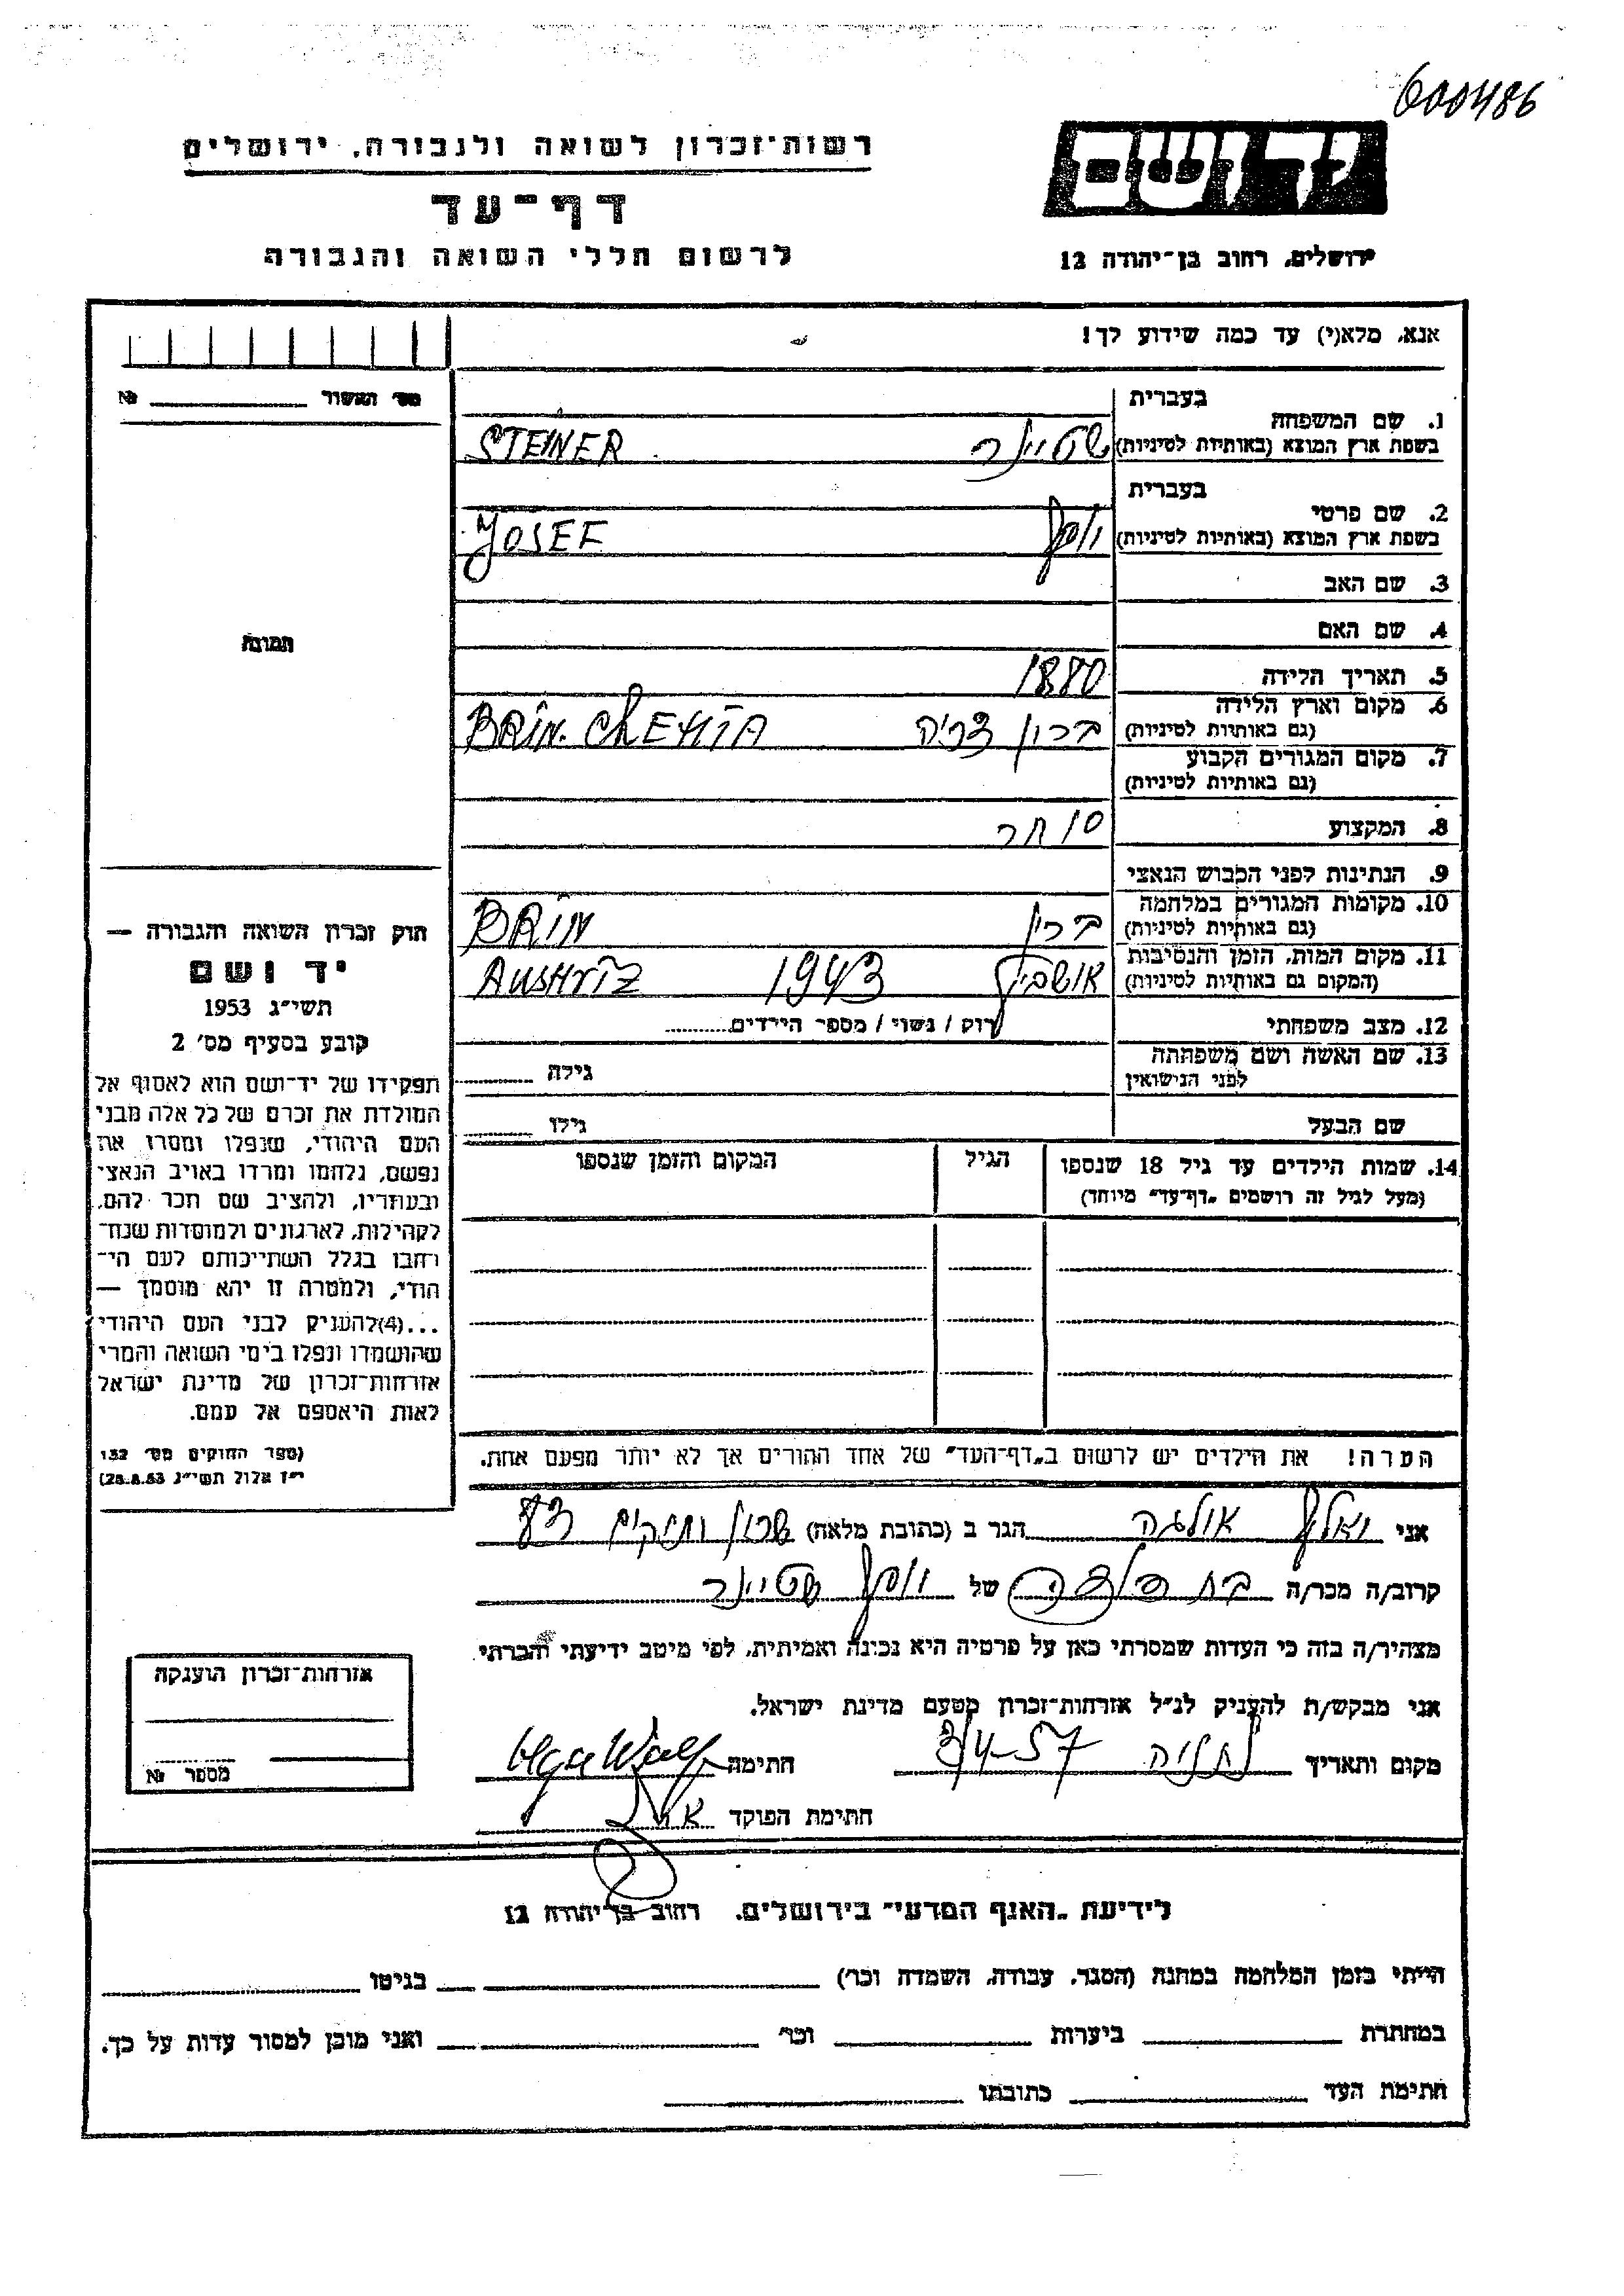 600486
יד ושם
ירושלים, רחוב בן־יהודה 12
רשות־זכרון לשואה ולגבורה, ירושלים
דף־עד
לרשום חללי השואה והגבורה
אנא, מלא(י) עד כמה שידוע לך!
מס' האשור № 
בעברית
1. שם המשפחה
בשפת ארץ המוצא (באותיות לטיניות) שטיינר STEINER
בעברית
2. שם פרטי
בשפת ארץ המוצא (באותיות לטיניות) יוסף JOSEF
3. שם האב
4. שם האם
5. תאריך הלידה 1880
6. מקום וארץ הלידה
(גם באותיות לטיניות) ברין צכיה BRIN. CHEHIA
7. מקום המגורים הקבוע
(גם באותיות לטיניות)
8. המקצוע סוחר
9. הנתינות לפני הכבוש הנאצי
10. מקומות המגורים במלחמה
(גם באותיות לטיניות) ברין BRIN
11. מקום המות, הזמן והנסיבות
(המקום גם באותיות לטיניות) אושביץ 1943 AUSHVITZ
12. מצב משפחתי רוק / נשוי / מספר הילדים
13. שם האשה ושם משפחתה
לפני הנישואין גילה
שם הבעל גילו
14. שמות הילדים עד גיל 18 שנספו הגיל המקום והזמן שנספו
(מעל לגיל זה רושמים "דף־עד" מיוחד)
תמונה
חוק זכרון השואה והגבורה —
יד ושם
תשי״ג 1953
קובע בסעיף מס' 2
תפקידו של יד־ושם הוא לאסוף אל
המולדת את זכרם של כל אלה מבני
העם היהודי, שנפלו ומסרו את
נפשם, נלחמו ומרדו באויב הנאצי
ובעוזריו, ולהציב שם וזכר להם,
לקהילות, לארגונים ולמוסדות שנח־
רבו בגלל השתייכותם לעם הי־
הודי, ולמטרה זו יהא מוסמך —
...(4)להעניק לבני העם היהודי
שהושמדו ונפלו בימי השואה והמרי
אזרחות־זכרון של מדינת ישראל
לאות היאספם אל עמם.
(ספר החוקים מס' 132
י״ז אלול תשי״ג 28.8.53)
הערה! את הילדים יש לרשום ב"דף־העד" של אחד ההורים אך לא יותר מפעם אחת.
אני ואלף אולגה הגר ב (כתובת מלאה) שכון ותיקים
קרוב/ה מכר/ה בת דודה של יוסף שטיינר
מצהיר/ה בזה כי העדות שמסרתי כאן על פרטיה היא נכונה ואמיתית, לפי מיטב ידיעתי והכרתי
אני מבקש/ת להעניק לנ״ל אזרחות־זכרון מטעם מדינת ישראל.
מקום ותאריך נתניה 3/4-57 חתימה Olga Wolf
חתימת הפוקד
אזרחות־זכרון הוענקה
מספר №
לידיעת "האגף המדעי" בירושלים, רחוב בן־יהודה 12
הייתי בזמן המלחמה במחנה (הסגר, עבודה, השמדה וכר') בגיטו
במחתרת ביערות וכר' ואני מוכן למסור עדות על כך.
חתימת העד כתובתו